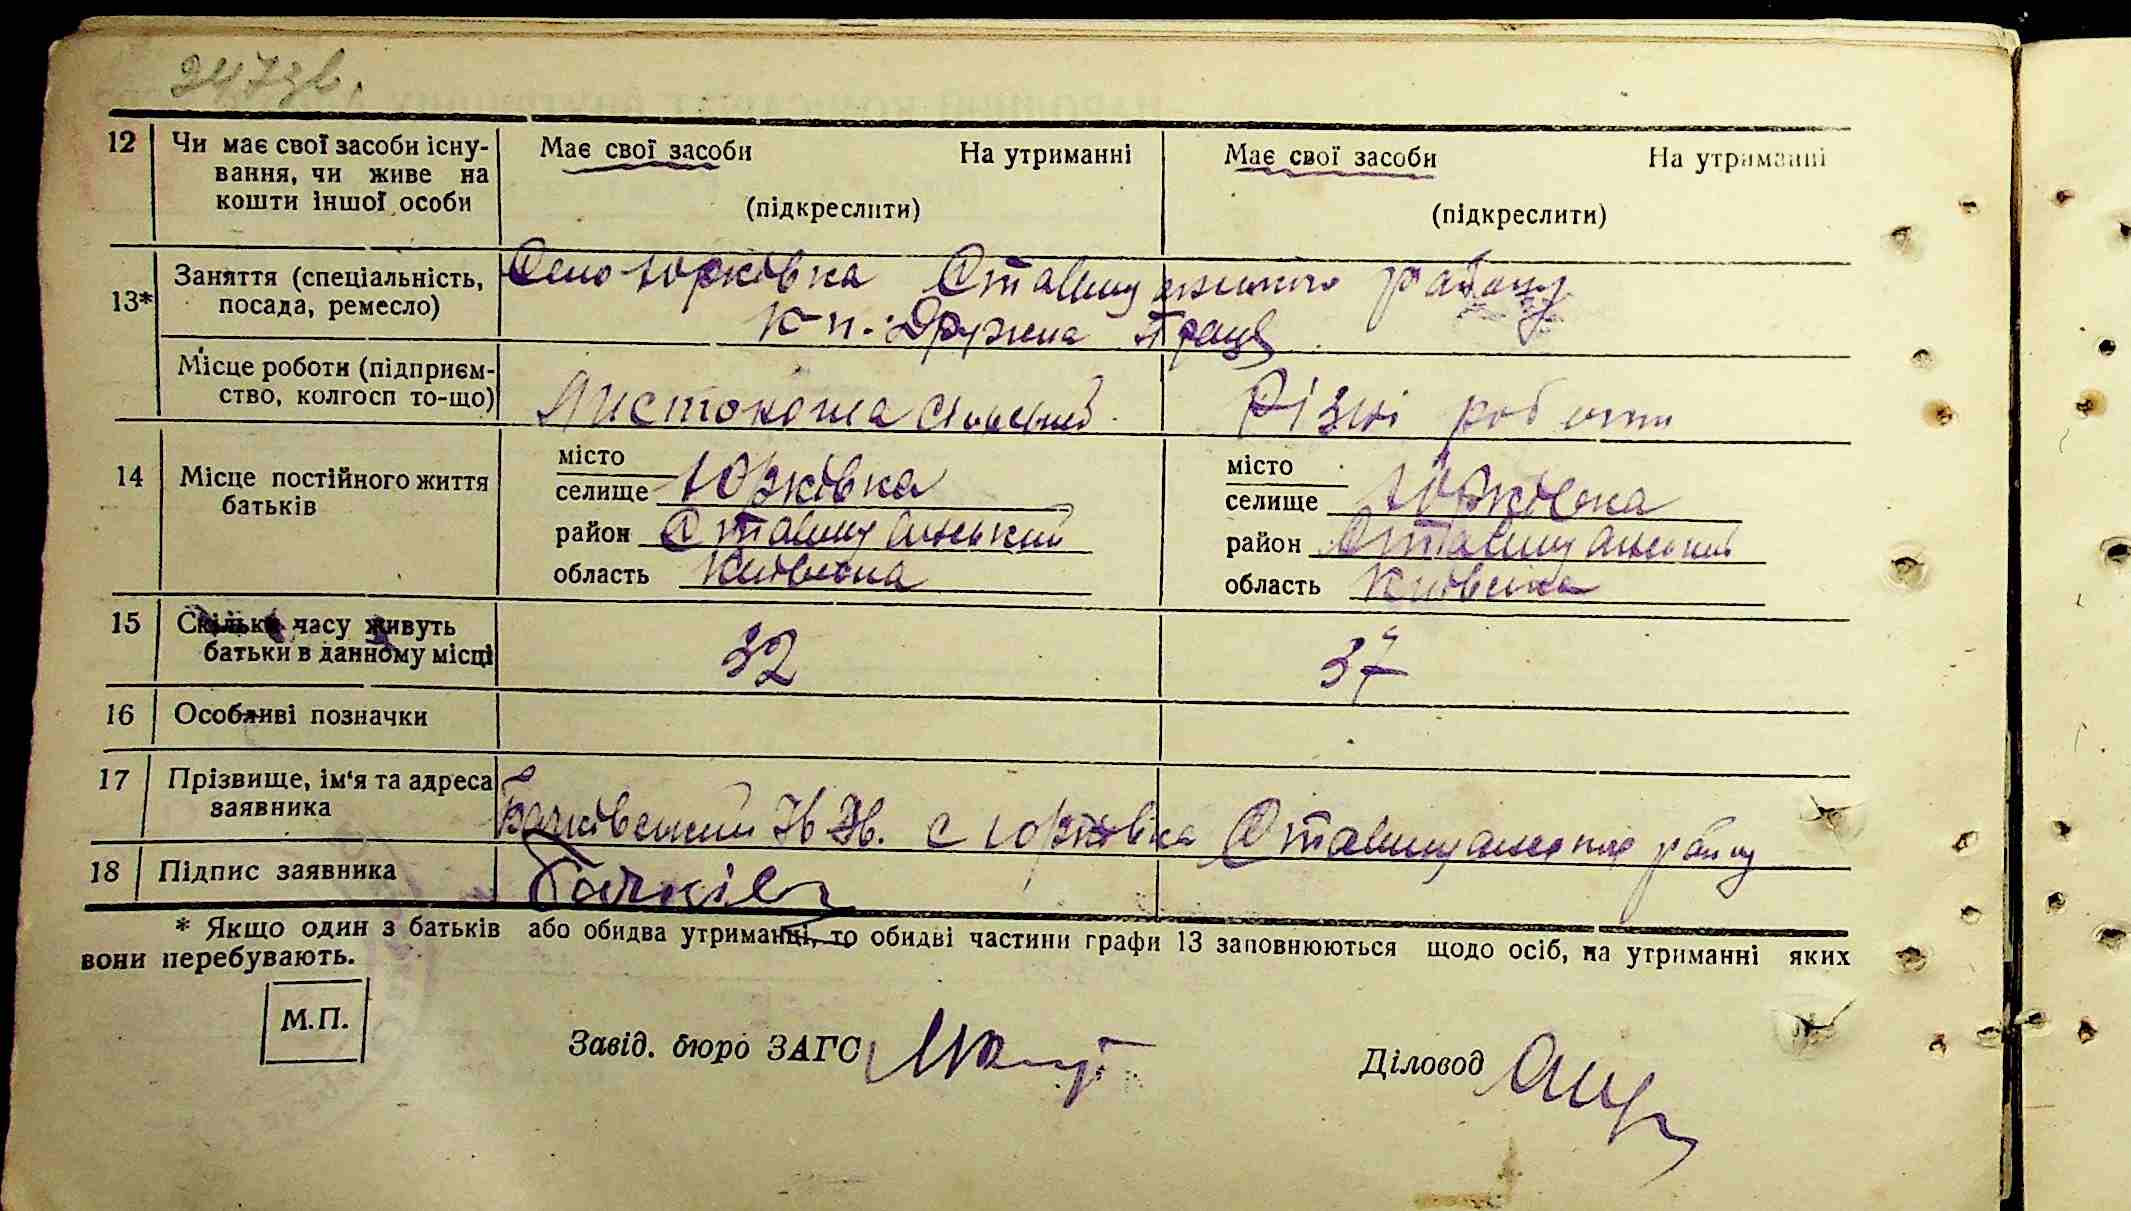 247зв.
12 Чи має свої засоби існу- Має свої засоби На утриманні Має свої засоби На утриманні
вання, чи живе на
кошти іншої особи (підкреслити) (підкреслити)
13* Заняття (спеціальність, Село Юрківка Ставищанського району
посада, ремесло) К-п. Дружна Праця
Місце роботи (підприєм-
ство, колгосп то-що) Листоноша Різні роботи
14 Місце постійного життя місто місто
батьків селище Юрківка селище Юрківка
район Ставищанський район Ставищанський
область Київська область Київська
15 Скільки часу живуть
батьки в данному місці 32 37
16 Особливі позначки
17 Прізвище, ім'я та адреса
заявника Бачківський Ів Ів. с Юрківка Ставищанського району
18 Підпис заявника Бачків
* Якщо один з батьків або обидва утриманці, то обидві частини графи 13 заповнюються щодо осіб, на утриманні яких
вони перебувають.
М.П.
Завід. бюро ЗАГС Діловод